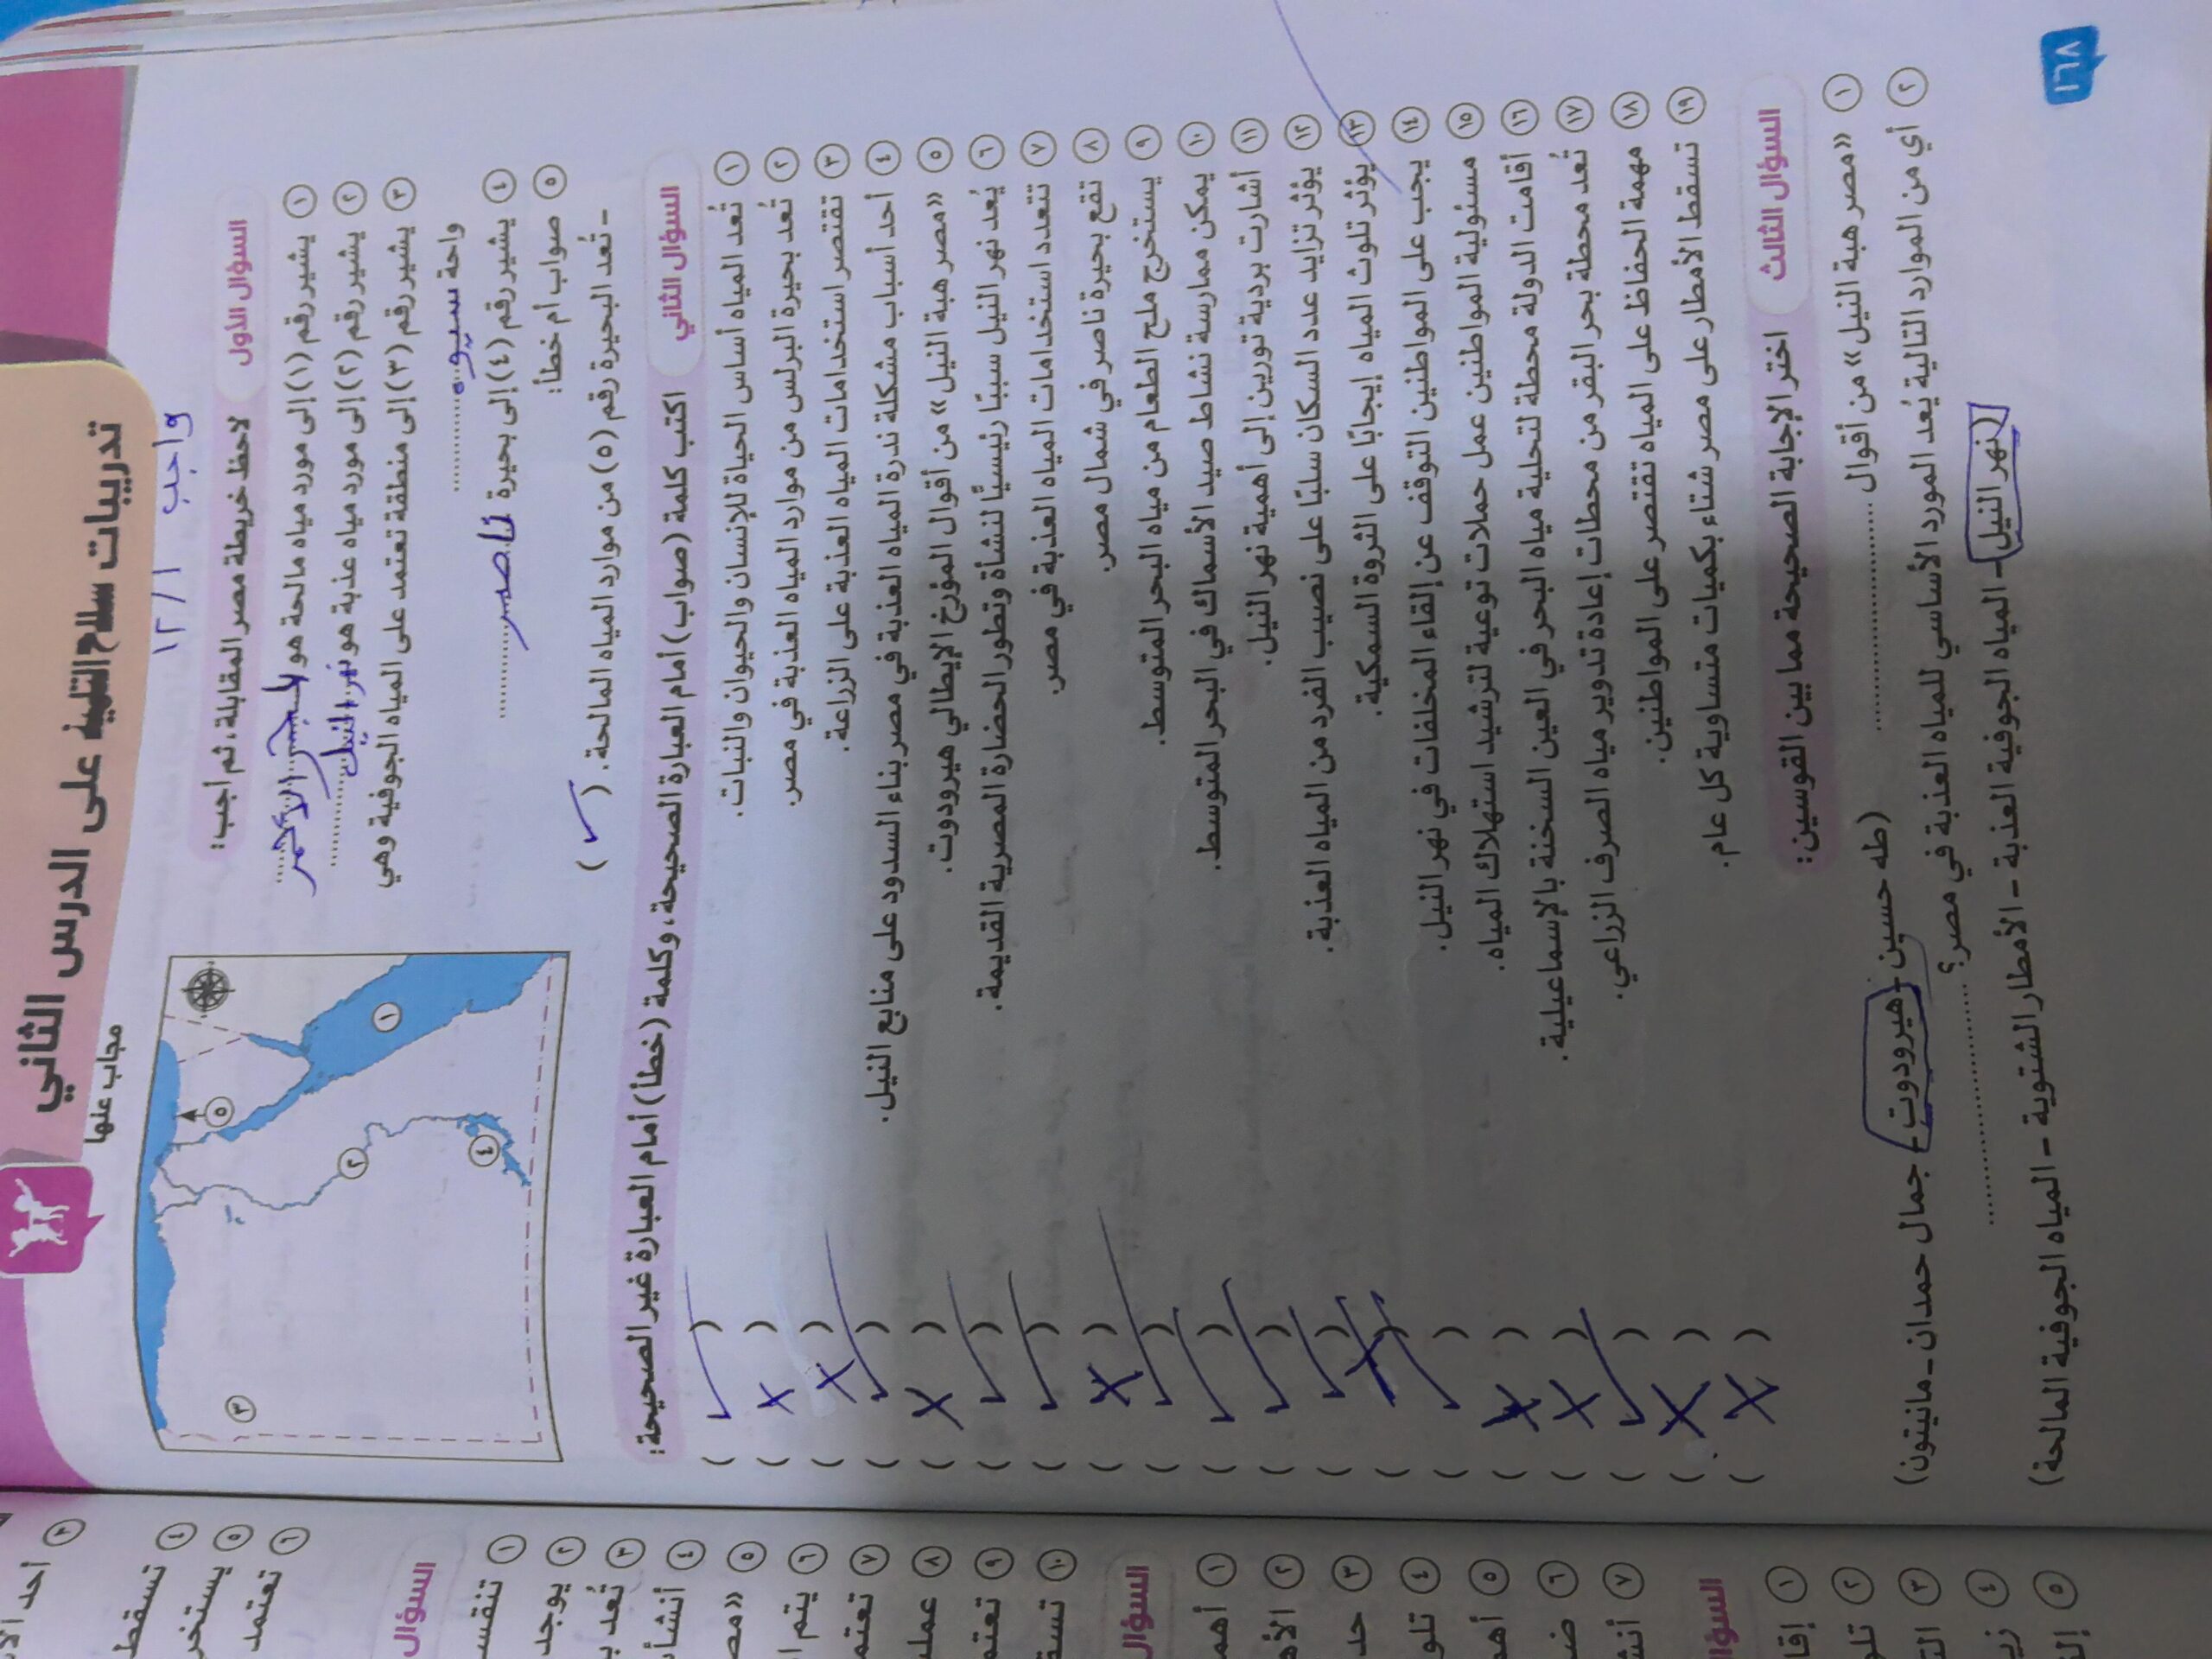 تدريبات سلاح التلميذ على الدرس الثاني
مجاب عنها
واجب ١٢/١
السؤال الأول لاحظ خريطة مصر المقابلة، ثم أجب:
١ يشير رقم (١) إلى مورد مياه مالحة هو البحر الأحمر
٢ يشير رقم (٢) إلى مورد مياه عذبة هو نهر النيل
٣ يشير رقم (٣) إلى منطقة تعتمد على المياه الجوفية وهي
واحة سيوه
٤ يشير رقم (٤) إلى بحيرة ناصر
٥ صواب أم خطأ:
- تُعد البحيرة رقم (٥) من موارد المياه المالحة. (✓)
١
٢
٣
٤
٥
السؤال الثاني اكتب كلمة (صواب) أمام العبارة الصحيحة، وكلمة (خطأ) أمام العبارة غير الصحيحة:
١ تُعد المياه أساس الحياة للإنسان والحيوان والنبات. (✓)
٢ تُعد بحيرة البرلس من موارد المياه العذبة في مصر. (x)
٣ تقتصر استخدامات المياه العذبة على الزراعة. (x)
٤ أحد أسباب مشكلة ندرة المياه العذبة في مصر بناء السدود على منابع النيل. (✓)
٥ «مصر هبة النيل» من أقوال المؤرخ الإيطالي هيرودوت. (x)
٦ يُعد نهر النيل سببًا رئيسيًّا لنشأة وتطور الحضارة المصرية القديمة. (✓)
٧ تتعدد استخدامات المياه العذبة في مصر. (✓)
٨ تقع بحيرة ناصر في شمال مصر. (x)
٩ يستخرج ملح الطعام من مياه البحر المتوسط. (✓)
١٠ يمكن ممارسة نشاط صيد الأسماك في البحر المتوسط. (✓)
١١ أشارت بردية تورين إلى أهمية نهر النيل. (✓)
١٢ يؤثر تزايد عدد السكان سلبًا على نصيب الفرد من المياه العذبة. (✓)
١٣ يؤثر تلوث المياه إيجابًا على الثروة السمكية. (x)
١٤ يجب على المواطنين التوقف عن إلقاء المخلفات في نهر النيل. (✓)
١٥ مسئولية المواطنين عمل حملات توعية لترشيد استهلاك المياه. (x)
١٦ أقامت الدولة محطة لتحلية مياه البحر في العين السخنة بالإسماعيلية. (x)
١٧ تُعد محطة بحر البقر من محطات إعادة تدوير مياه الصرف الزراعي. (✓)
١٨ مهمة الحفاظ على المياه تقتصر على المواطنين. (x)
١٩ تسقط الأمطار على مصر شتاء بكميات متساوية كل عام. (x)
السؤال الثالث اختر الإجابة الصحيحة مما بين القوسين:
١ «مصر هبة النيل» من أقوال ........................ (طه حسين - هيرودوت - جمال حمدان - مانيتون)
٢ أي من الموارد التالية يُعد المورد الأساسي للمياه العذبة في مصر؟ ........................
(نهر النيل - المياه الجوفية العذبة - الأمطار الشتوية - المياه الجوفية المالحة)
١٦٨
٣ أحد
٤ تسقط
٥ يستخر
٦ تعتمد
السؤال
١ تنقسـ
٢ يوجد
٣ تُعد بـ
٤ أنشأ
٥ «مصـ
٦ يتم ا
٧ تعتم
٨ عملـ
٩ تعتم
١٠ تسقـ
السؤال
١ أهم
٢ الأهـ
٣ حد
٤ تلو
٥ أهم
٦ ضـ
٧ أنشـ
السؤال
١ إقا
٢ تلو
٣ التـ
٤ زيـ
٥ إلقـ